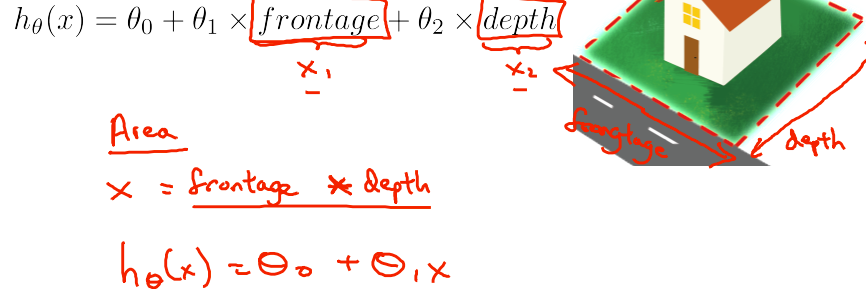 h_θ(x) = θ_0 + θ_1 × frontage + θ_2 × depth
x_1 x_2
frongtage
depth
Area
x = frontage * depth
h_θ(x) = θ_0 + θ_1 x